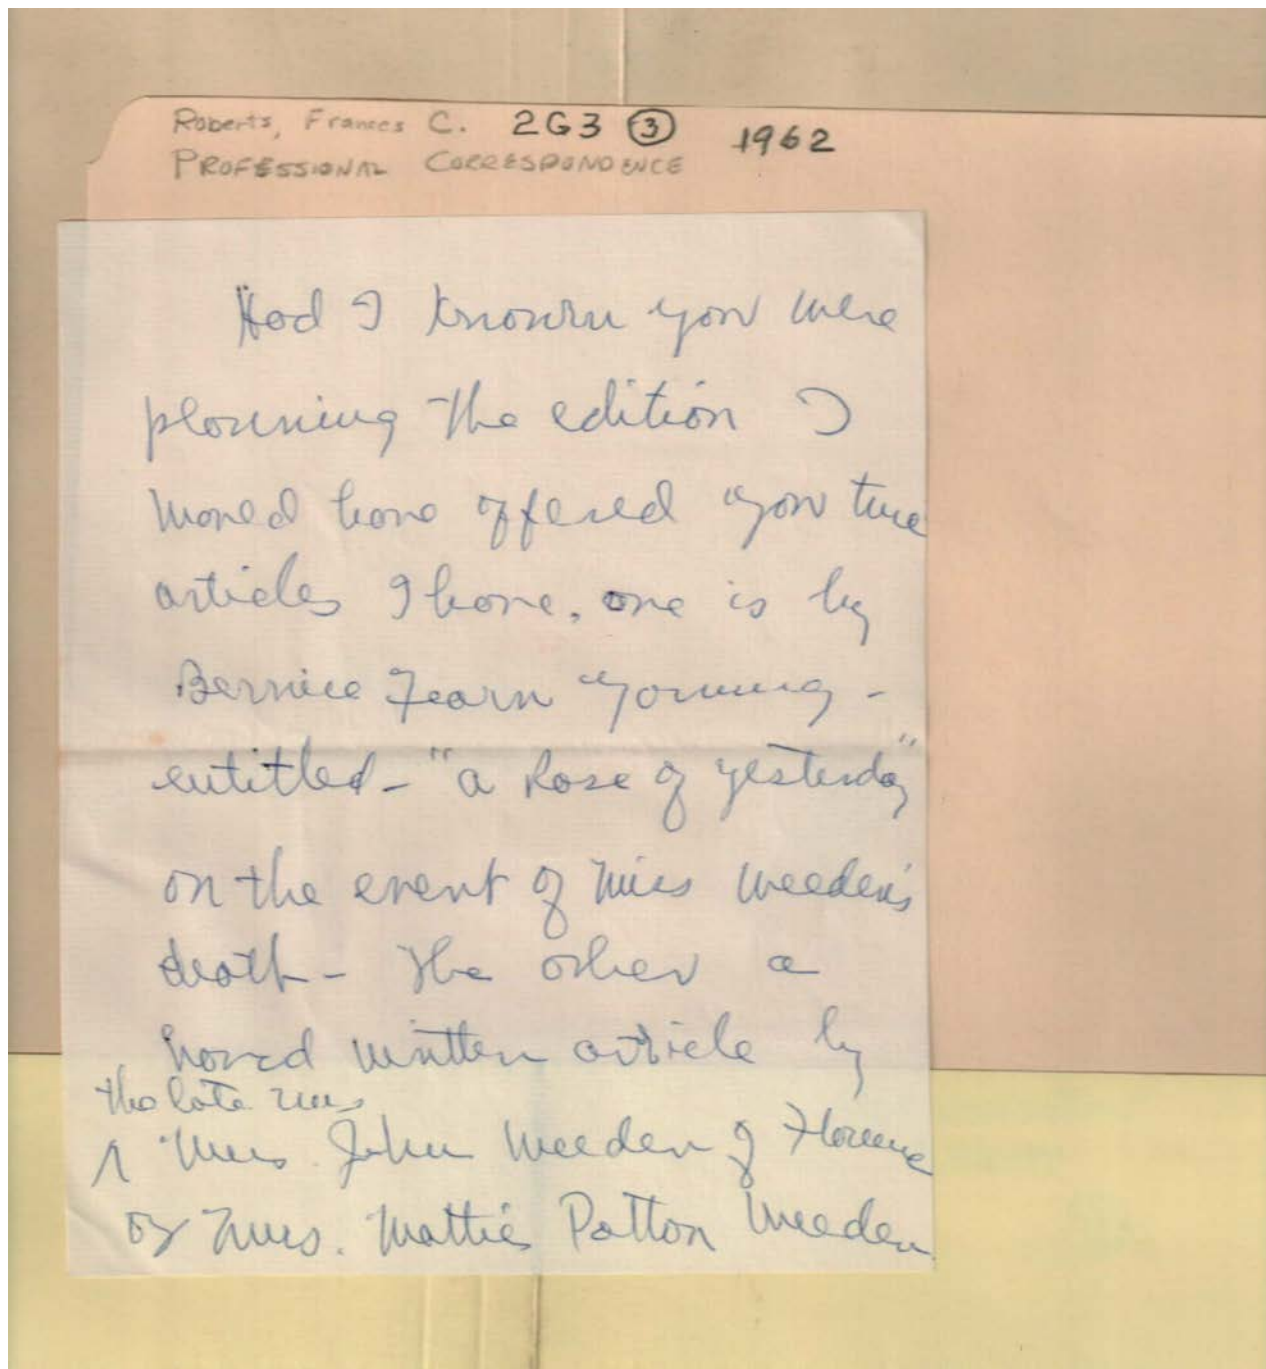 Roberts, Frances C. 2G3 3 1962
PROFESSIONAL CORRESPONDENCE
Had I known you were
planning the edition I
would have offered you two
articles I have, one is by
Bernice Fearn Young -
entitled - "a Rose of yesterday"
on the event of Miss Weeden's
death - The other a
hand written article by
the late Mrs
Mrs. John Weeden of Florence
or Mrs. Mattie Patton Weeden.